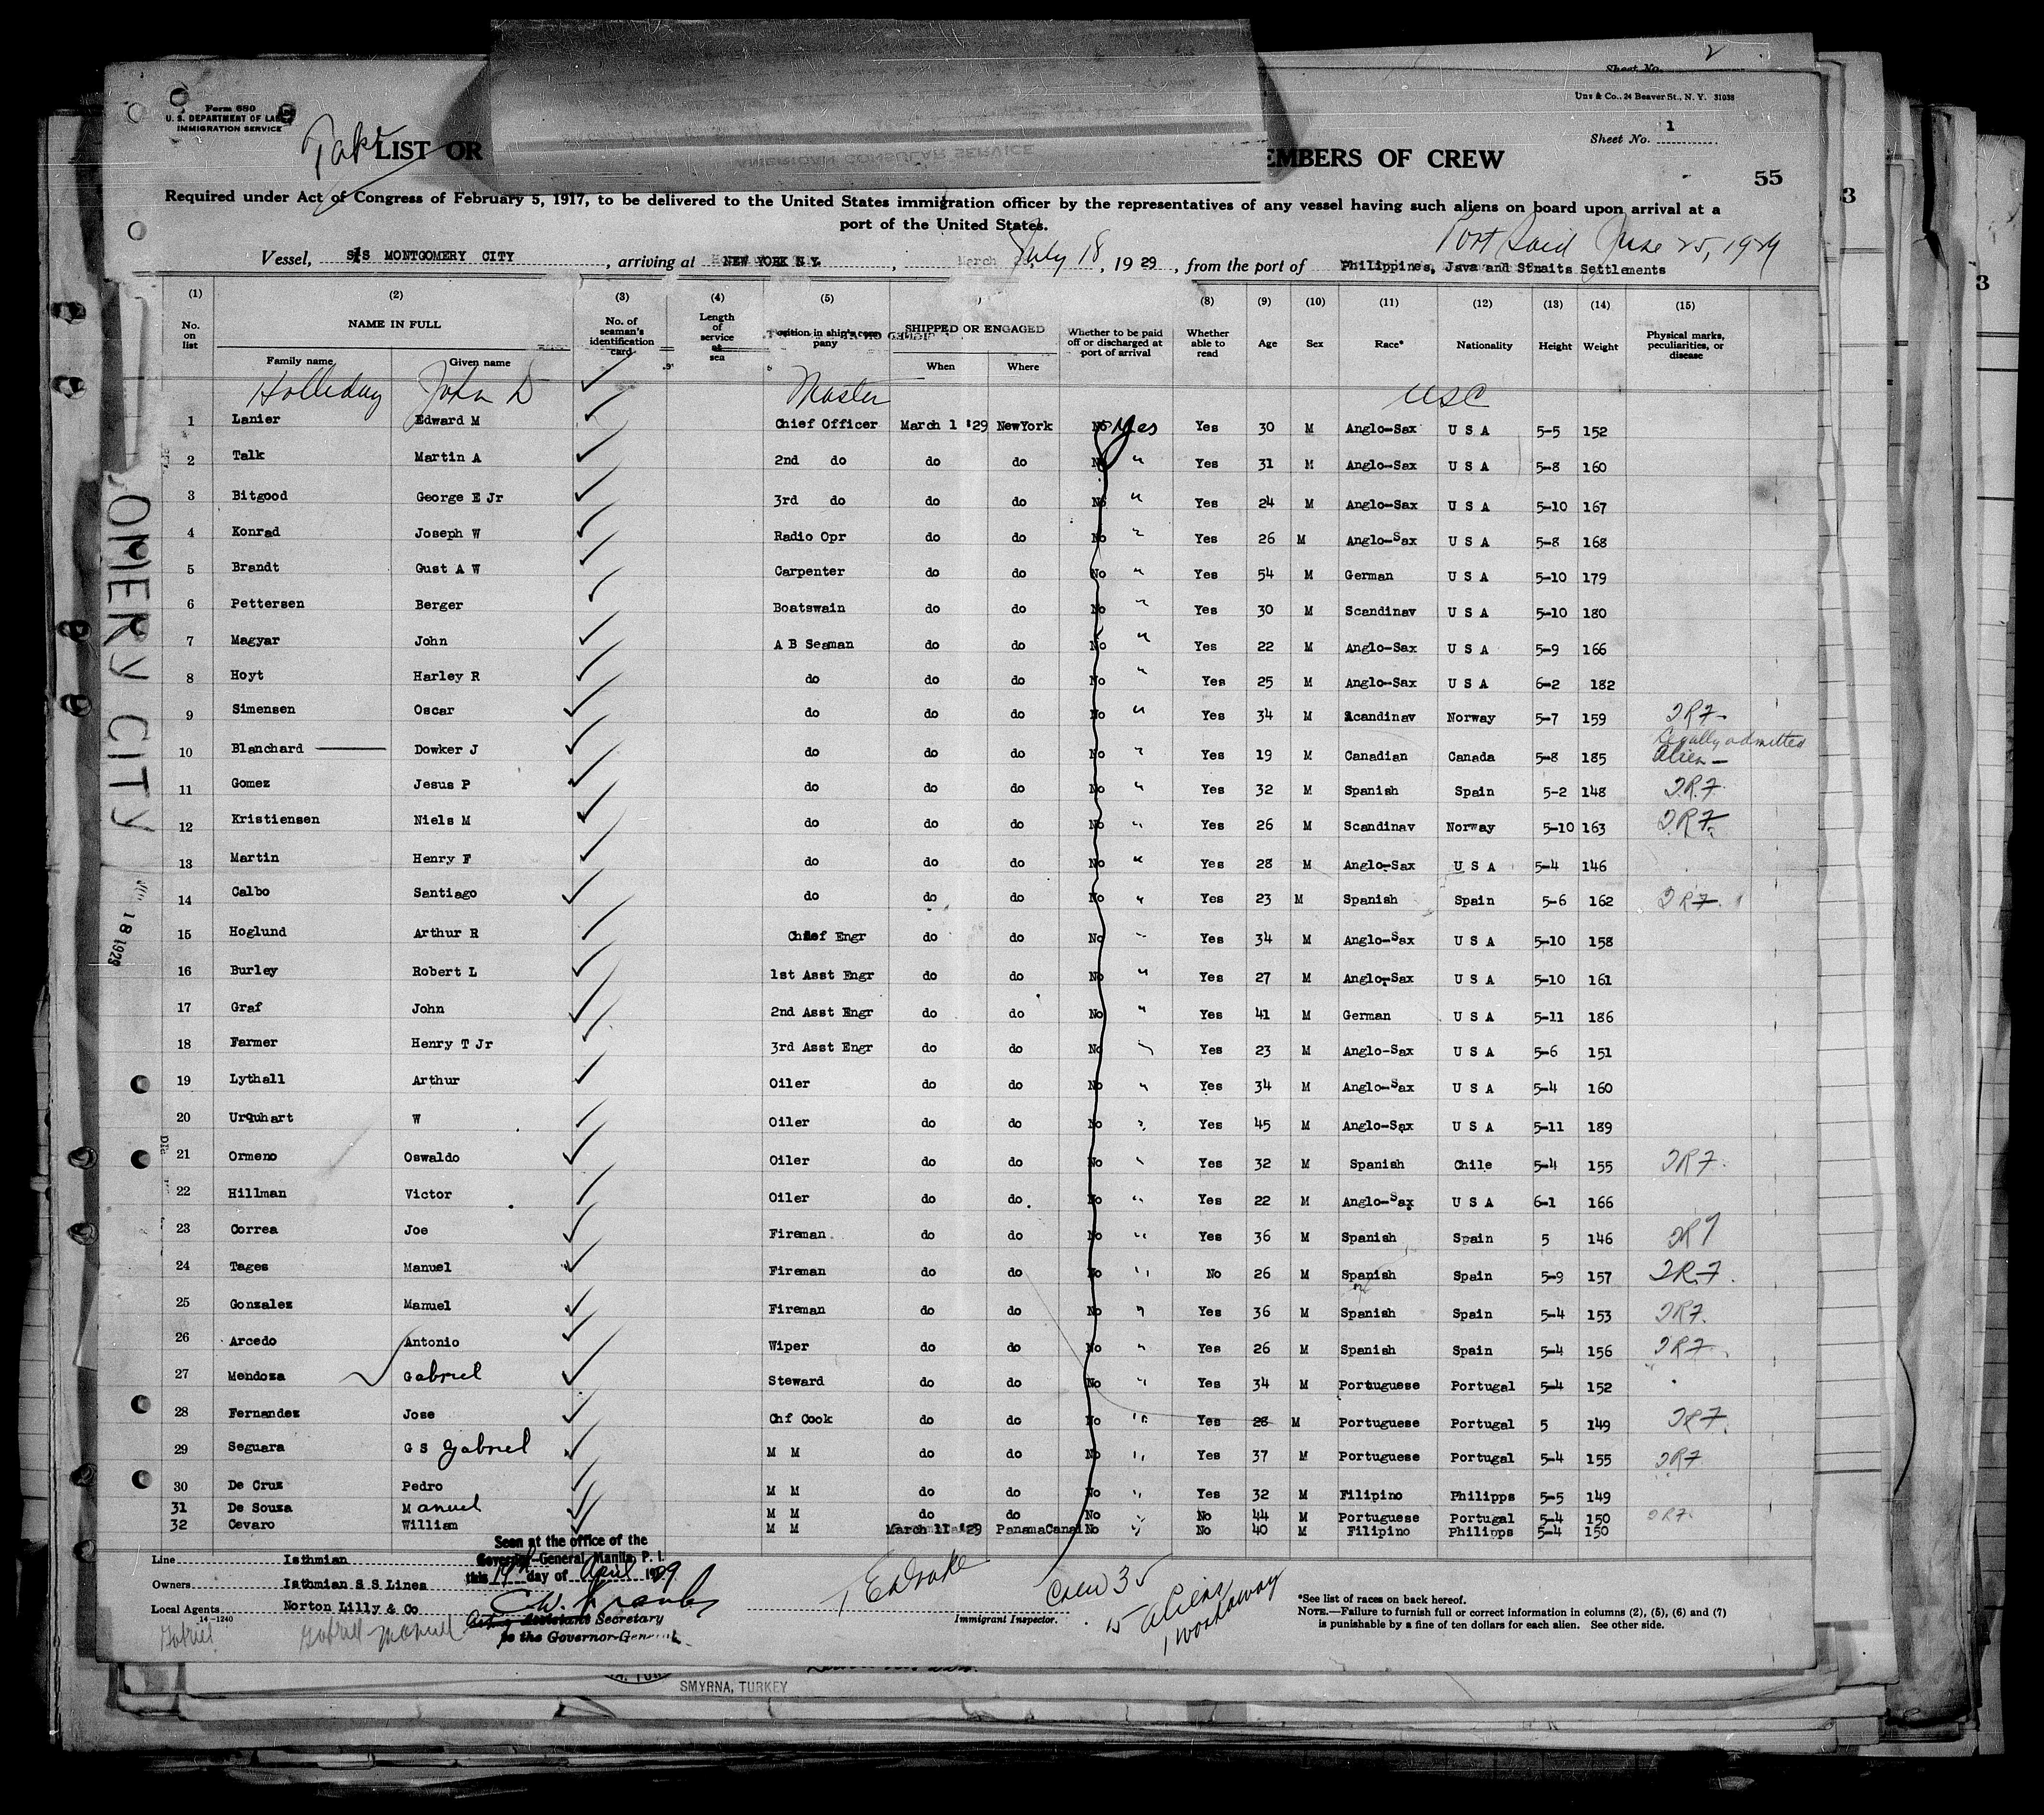 Sheet No. 2
Form 680
U. S. DEPARTMENT OF LA
IMMIGRATION SERVICE
Unz & Co., 24 Beaver St., N. Y. 31038
Sheet No. 1
LIST OR
AMERICAN CONSULAR SERVICE
EMBERS OF CREW
55
3
3
Required under Act of Congress of February 5, 1917, to be delivered to the United States immigration officer by the representatives of any vessel having such aliens on board upon arrival at a
port of the United States.
Port Said June 25, 1929
Vessel, S/S MONTGOMERY CITY, arriving at NEW YORK N.Y., March July 18, 1929, from the port of Philippines, Java and Straits Settlements
(1) (2) (3) (4) (5) (8) (9) (10) (11) (12) (13) (14) (15)
No. on list NAME IN FULL Family name Given name No. of seaman's identification card Length of service at sea Position in ship's company SHIPPED OR ENGAGED When Where Whether to be paid off or discharged at port of arrival Whether able to read Age Sex Race* Nationality Height Weight Physical marks, peculiarities, or disease
Holliday John D Master USC
1 Lanier Edward M Chief Officer March 1 '29 NewYork No Yes Yes 30 M Anglo-Sax U S A 5-5 152
2 Talk Martin A 2nd do do do No " Yes 31 M Anglo-Sax U S A 5-8 160
3 Bitgood George E Jr 3rd do do do No " Yes 24 M Anglo-Sax U S A 5-10 167
4 Konrad Joseph W Radio Opr do do No " Yes 26 M Anglo-Sax U S A 5-8 168
5 Brandt Gust A W Carpenter do do No " Yes 54 M German U S A 5-10 179
6 Pettersen Berger Boatswain do do No " Yes 30 M Scandinav U S A 5-10 180
7 Magyar John A B Seaman do do No " Yes 22 M Anglo-Sax U S A 5-9 166
8 Hoyt Harley R do do do No " Yes 25 M Anglo-Sax U S A 6-2 182
9 Simensen Oscar do do do No " Yes 34 M Scandinav Norway 5-7 159 DRF
10 Blanchard Dowker J do do do No " Yes 19 M Canadian Canada 5-8 185 Legally admitted Alien
11 Gomez Jesus P do do do No " Yes 32 M Spanish Spain 5-2 148 DRF
12 Kristiensen Niels M do do do No " Yes 26 M Scandinav Norway 5-10 163 DRF
13 Martin Henry F do do do No " Yes 28 M Anglo-Sax U S A 5-4 146
14 Calbo Santiago do do do No " Yes 23 M Spanish Spain 5-6 162 DRF
15 Hoglund Arthur R Chief Engr do do No " Yes 34 M Anglo-Sax U S A 5-10 158
16 Burley Robert L 1st Asst Engr do do No " Yes 27 M Anglo-Sax U S A 5-10 161
17 Graf John 2nd Asst Engr do do No " Yes 41 M German U S A 5-11 186
18 Farmer Henry T Jr 3rd Asst Engr do do No " Yes 23 M Anglo-Sax U S A 5-6 151
19 Lythall Arthur Oiler do do No " Yes 34 M Anglo-Sax U S A 5-4 160
20 Urquhart W Oiler do do No " Yes 45 M Anglo-Sax U S A 5-11 189
21 Ormeno Oswaldo Oiler do do No " Yes 32 M Spanish Chile 5-4 155 DRF
22 Hillman Victor Oiler do do No " Yes 22 M Anglo-Sax U S A 6-1 166
23 Correa Joe Fireman do do No " Yes 36 M Spanish Spain 5 146 DRF
24 Tages Manuel Fireman do do No " No 26 M Spanish Spain 5-9 157 DRF
25 Gonzalez Manuel Fireman do do No " Yes 36 M Spanish Spain 5-4 153 DRF
26 Arcedo Antonio Wiper do do No " Yes 26 M Spanish Spain 5-4 156 DRF
27 Mendoza Gabriel Steward do do No " Yes 34 M Portuguese Portugal 5-4 152
28 Fernandez Jose Chf Cook do do No " Yes 28 M Portuguese Portugal 5 149 DRF
29 Seguara G S Gabriel M M do do No " Yes 37 M Portuguese Portugal 5-4 155 DRF
30 De Cruz Pedro M M do do No " Yes 32 M Filipino Philipps 5-5 149
31 De Souza Manuel M M do do No " No 44 M Portuguese Portugal 5-4 150 DRF
32 Cevaro William M M March 11 '29 PanamaCanal No " No 40 M Filipino Philipps 5-4 150
OMERY CITY
18 1929
Seen at the office of the
Governor-General, Manila, P. I.
this 19th day of April 1929
Assistant Secretary
to the Governor-General
Line Isthmian
Owners Isthmian S S Lines
Local Agents Norton Lilly & Co
14-1240
Gabriel Gabriel Manuel
Immigrant Inspector.
Crew 35
15 Aliens
1 workaway
*See list of races on back hereof.
NOTE.—Failure to furnish full or correct information in columns (2), (5), (6) and (7)
is punishable by a fine of ten dollars for each alien. See other side.
SMYRNA, TURKEY